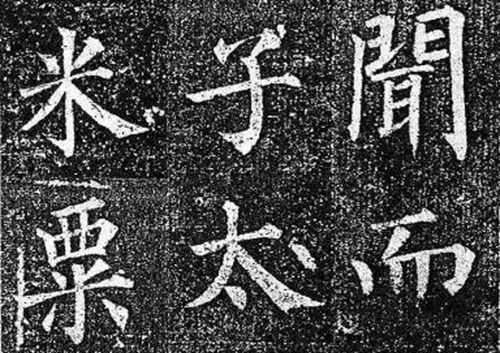 聞而
子太
米粟